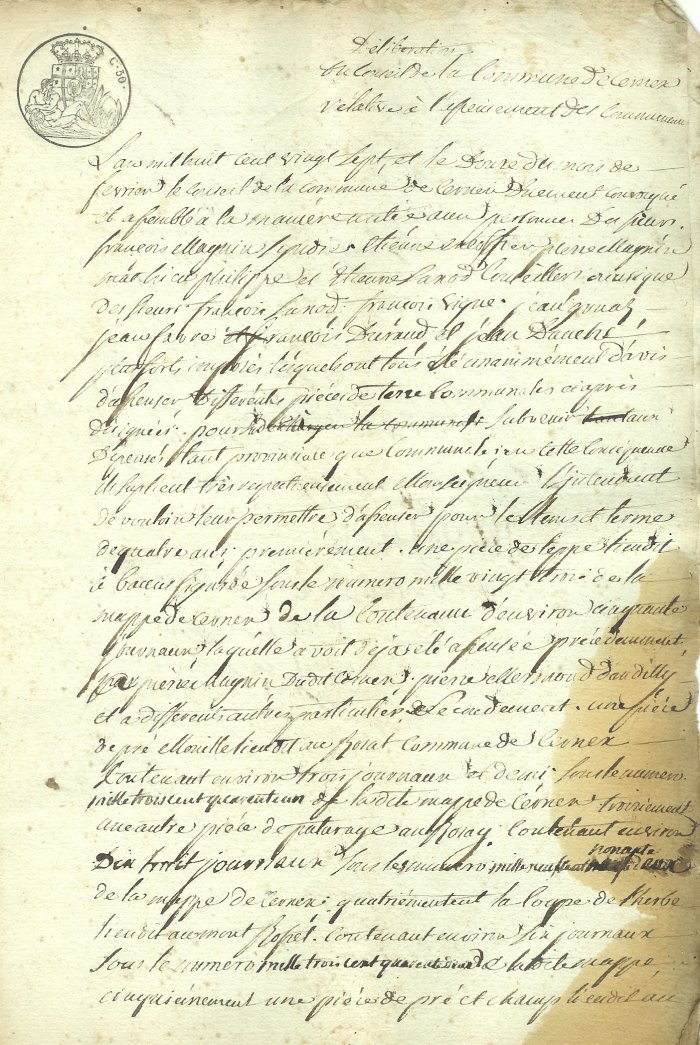 C. 50.
Déliberation
Du Conseil de la Commune de Cernex
relative à l'assensement des Communaux
L'an mil huit cent vingt sept, et le douze du mois de
fevrier le Conseil de la commune de Cernex Duement convoqué
et assemblé à la maniére usitée aux personnes Des sieurs
françois Magnin Sindic Etienne pierre Magnin
philippe et Etienne Sanod Conseillers
des sieurs françois Sanod françois vigne
jean favre et françois Durand et jean Dauché
plus forts lesquels ont tous été unanimement d'avis
d'assenser differentes piéces de terre Communales ci après
désignées pour decharger la commune subvenir tant aux
Depenses tant provinciale que Communale en cette Consequence
ils suplient très respectueusement Monseigneur l'jntendant
de vouloir leur permettre d'assenser pour le et terme
de quatre ans premiérement. une piéce de teppe lieudit
à figurée sous le numero mille vingt de la
mappe de Cernex de la Contenance d'environ cinquante
journaux laquelle avoit déja été assensée précédemment
par pierre Magnin Dudit Cernex. pierre Mermoud d'andilly
et a differents autres particuliers une piéce
de pré Mouille lieudit au Rosat Commune de Cernex
Contenant environ trois journaux et demi sous le numero
mille trois cent quarente un de la dite mappe de Cernex troisiement
une autre piéce de paturage au Rosay Contenant environ
Dix huit journaux sous le numero mille neuf cent nonante deux
de la mappe de Cernex. quatriémement la loupe de l'herbe
lieudit au mont Rosét. Contenant environ six journaux
sous le numero mille trois cent quarente de la dite mappe,
cinquiémement une piéce de pré et champ lieudit au